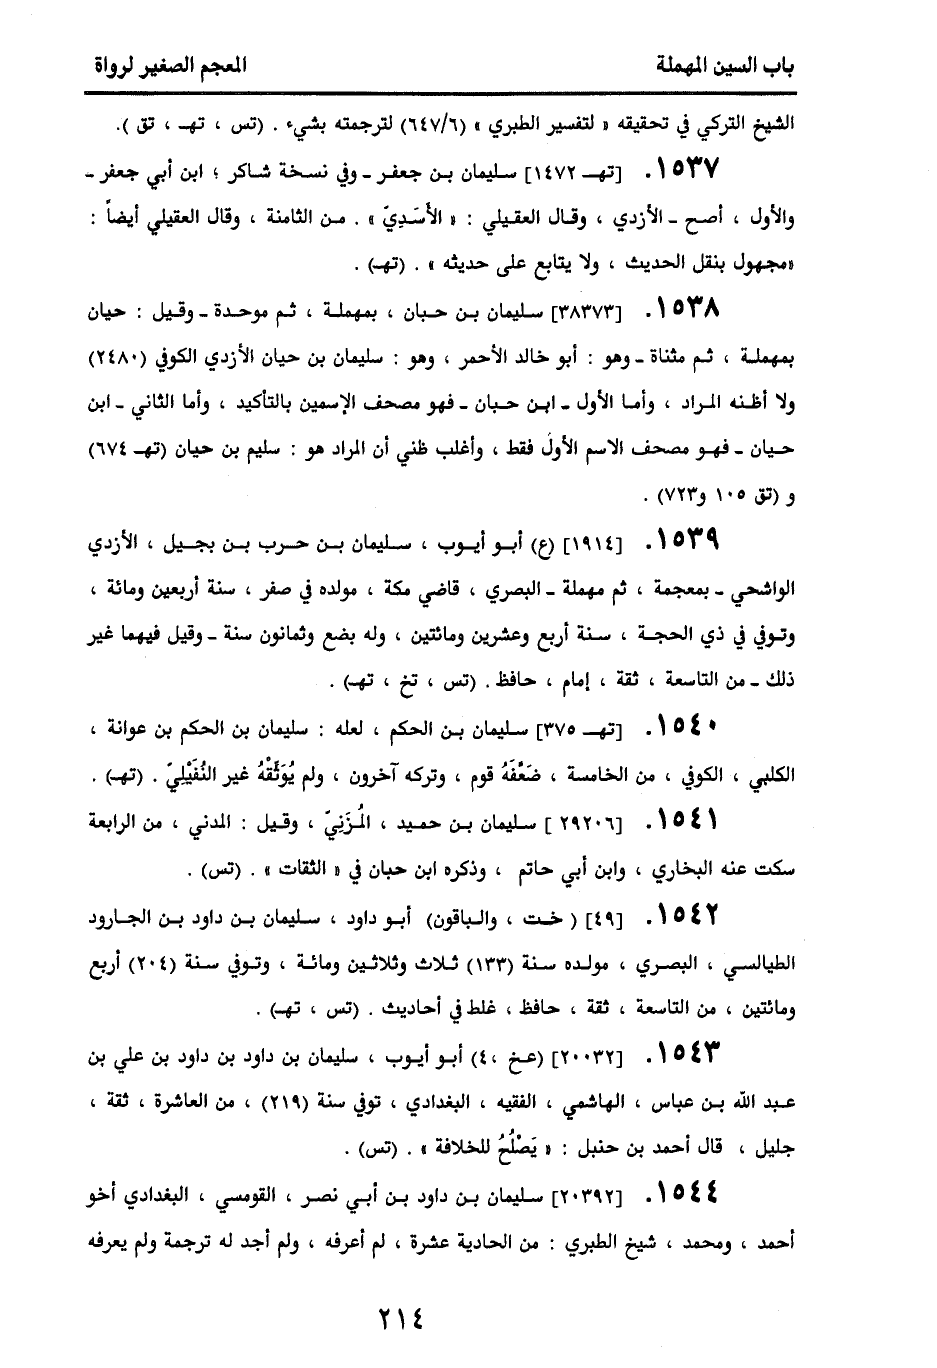 باب السين المهملة
المعجم الصغير لرواة
الشيخ التركي في تحقيقه « لتفسير الطبري » (٦٤٧/٦) لترجمته بشيء . (تس ، تهـ ، تق ).
١٥٣٧. [تهـ ١٤٧٢] سليمان بن جعفر ـ وفي نسخة شاكر ؛ ابن أبي جعفر ـ
والأول ، أصح ـ الأزدي ، وقال العقيلي : « الأَسَدِيّ » . من الثامنة ، وقال العقيلي أيضاً :
«مجهول بنقل الحديث ، ولا يتابع على حديثه » . (تهـ) .
١٥٣٨. [٣٨٣٧٣] سليمان بن حبان ، بمهملة ، ثم موحدة ـ وقيل : حيان
بمهملة ، ثم مثناة ـ وهو : أبو خالد الأحمر ، وهو : سليمان بن حيان الأزدي الكوفي (٢٤٨٠)
ولا أظنه المراد ، وأما الأول ـ ابن حبان ـ فهو مصحف الإسمين بالتأكيد ، وأما الثاني ـ ابن
حيان ـ فهو مصحف الاسم الأول فقط ، وأغلب ظني أن المراد هو : سليم بن حيان (تهـ ٦٧٤)
و (تق ١٠٥ و٧٢٣) .
١٥٣٩. [١٩١٤] (ع) أبو أيوب ، سليمان بن حرب بن بجيل ، الأزدي
الواشحي ـ بمعجمة ، ثم مهملة ـ البصري ، قاضي مكة ، مولده في صفر ، سنة أربعين ومائة ،
وتوفي في ذي الحجة ، سنة أربع وعشرين ومائتين ، وله بضع وثمانون سنة ـ وقيل فيهما غير
ذلك ـ من التاسعة ، ثقة ، إمام ، حافظ . (تس ، تخ ، تهـ) .
١٥٤٠. [تهـ ٣٧٥] سليمان بن الحكم ، لعله : سليمان بن الحكم بن عوانة ،
الكلبي ، الكوفي ، من الخامسة ، ضَعْفَهُ قوم ، وتركه آخرون ، ولم يُوَثِّقْهُ غير النُّفَيْلِيّ . (تهـ) .
١٥٤١. [٢٩٢٠٦ ] سليمان بن حميد ، المُزَنِيّ ، وقيل : المدني ، من الرابعة
سكت عنه البخاري ، وابن أبي حاتم ، وذكره ابن حبان في « الثقات » . (تس) .
١٥٤٢. [٤٩] ( خت ، والباقون) أبو داود ، سليمان بن داود بن الجارود
الطيالسي ، البصري ، مولده سنة (١٣٣) ثلاث وثلاثين ومائة ، وتوفي سنة (٢٠٤) أربع
ومائتين ، من التاسعة ، ثقة ، حافظ ، غلط في أحاديث . (تس ، تهـ) .
١٥٤٣. [٢٠٠٣٢] (عخ ،٤) أبو أيوب ، سليمان بن داود بن داود بن علي بن
عبد الله بن عباس ، الهاشمي ، الفقيه ، البغدادي ، توفي سنة (٢١٩) ، من العاشرة ، ثقة ،
جليل ، قال أحمد بن حنبل : « يَصْلُحُ للخلافة » . (تس) .
١٥٤٤. [٢٠٣٩٢] سليمان بن داود بن أبي نصر ، القومسي ، البغدادي أخو
أحمد ، ومحمد ، شيخ الطبري : من الحادية عشرة ، لم أعرفه ، ولم أجد له ترجمة ولم يعرفه
٢١٤